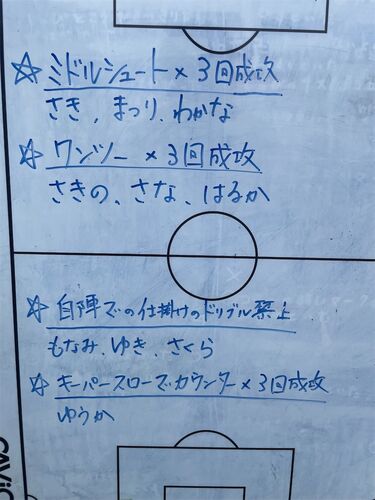 ☆ミドルシュート×3回成攻
さき、まつり、わかな
☆ワンツー×3回成攻
さきの、さな、はるか
☆自陣での仕掛けのドリブル禁止
もなみ、ゆき、さくら
☆キーパースローでカウンター×3回成攻
ゆうか